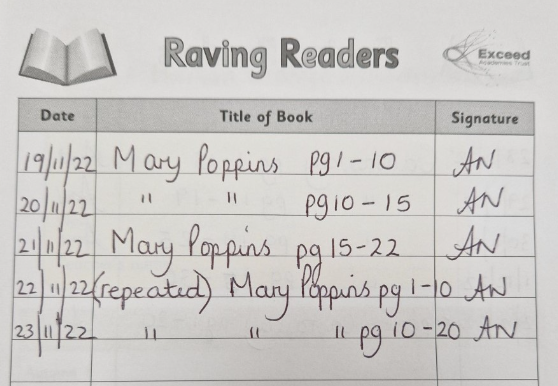 Raving Readers
Exceed
Academies Trust
Date Title of Book Signature
19/11/22 Mary Poppins pg 1-10 AN
20/11/22 " " pg 10-15 AN
21/11/22 Mary Poppins pg 15-22 AN
22/11/22 (repeated) Mary Poppins pg 1-10 AN
23/11/22 " " " pg 10-20 AN